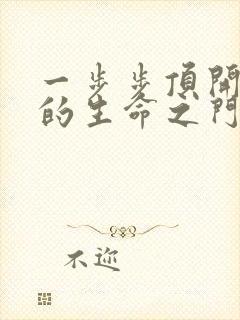 一步步頂開
的生命之門
不迩